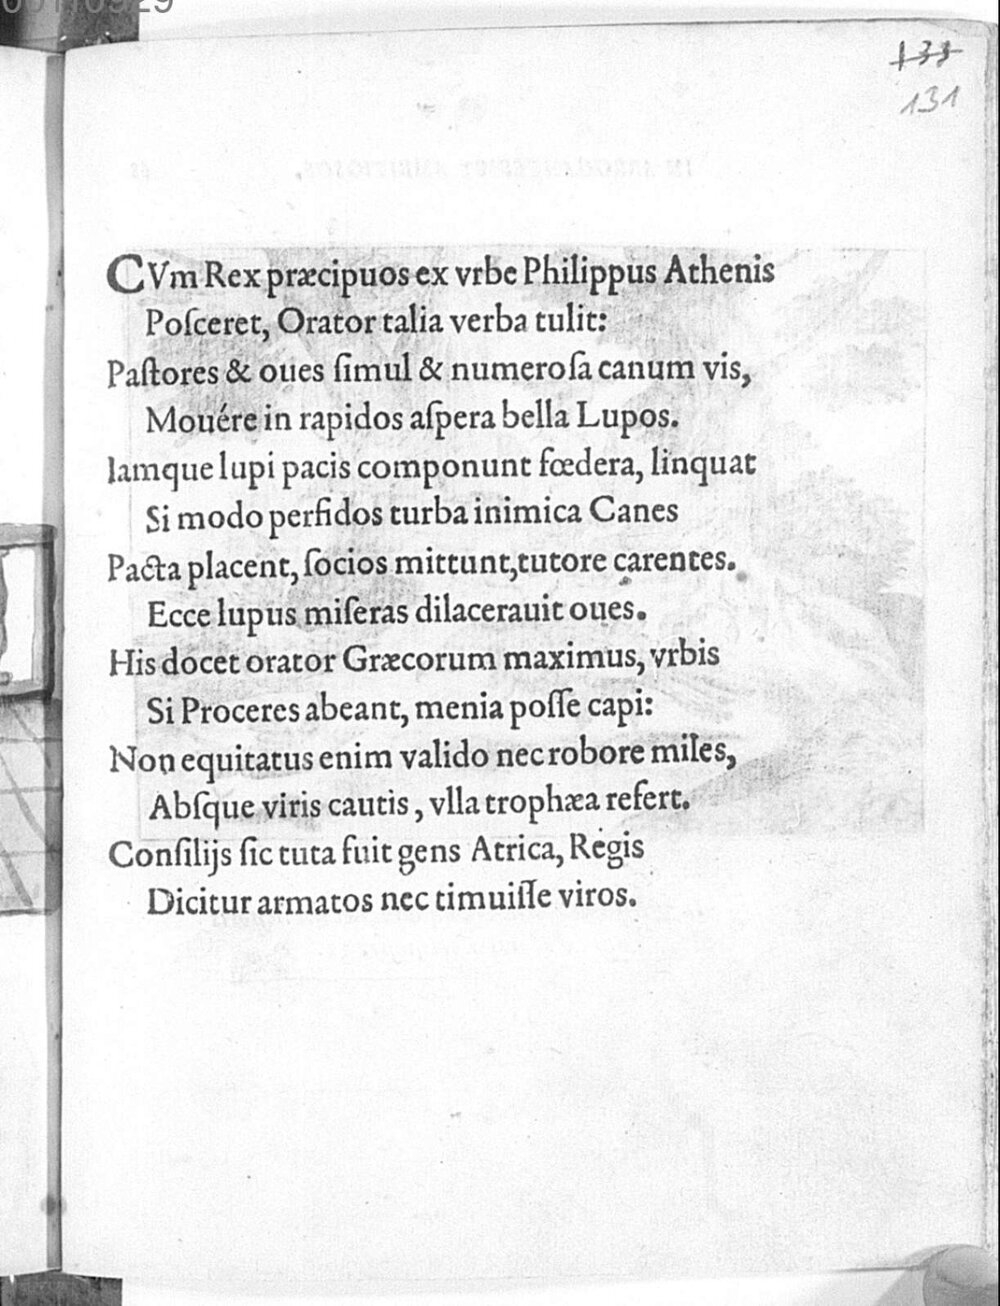 00110929
133
131
CVm Rex præcipuos ex vrbe Philippus Athenis
Poſceret, Orator talia verba tulit:
Paſtores & oues ſimul & numeroſa canum vis,
Mouére in rapidos aſpera bella Lupos.
Iamque lupi pacis componunt fœdera, linquat
Si modo perfidos turba inimica Canes
Pacta placent, ſocios mittunt, tutore carentes.
Ecce lupus miſeras dilacerauit oues.
His docet orator Græcorum maximus, vrbis
Si Proceres abeant, menia poſſe capi:
Non equitatus enim valido nec robore miles,
Abſque viris cautis, vlla trophæa refert.
Conſilijs ſic tuta fuit gens Attica, Regis
Dicitur armatos nec timuiſſe viros.